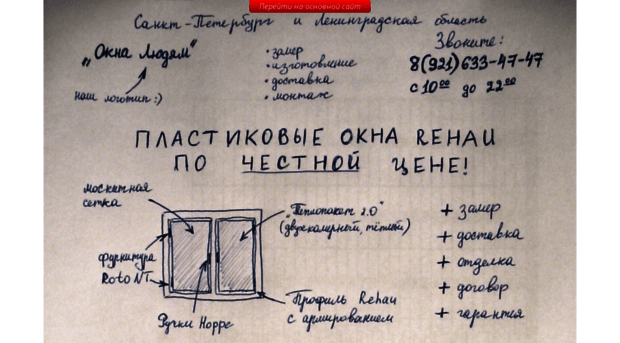 Перейти на основной сайт
Санкт-Петербург и Ленинградская область
„Окна Людям"
наш логотип :)
• замер
• изготовление
• доставка
• монтаж
Звоните:
8(921)633-47-47
с 10⁰⁰ до 22⁰⁰
ПЛАСТИКОВЫЕ ОКНА REHAU
ПО ЧЕСТНОЙ ЦЕНЕ!
москитная
сетка
фурнитура
Roto NT
Ручки Hoppe
„Теплопакет 2.0"
(двухкамерный, тёплый)
Профиль Rehau
с армированием
+ замер
+ доставка
+ отделка
+ договор
+ гарантия